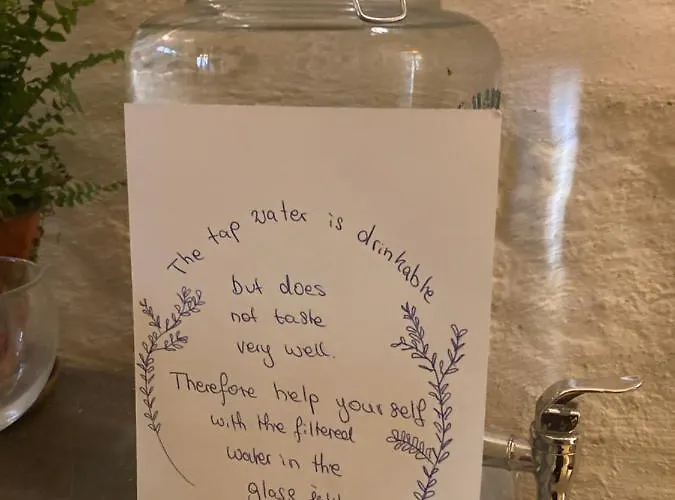 The tap water is drinkable
but does
not taste
very well.
Therefore help yourself
with the filtered
water in the
glass